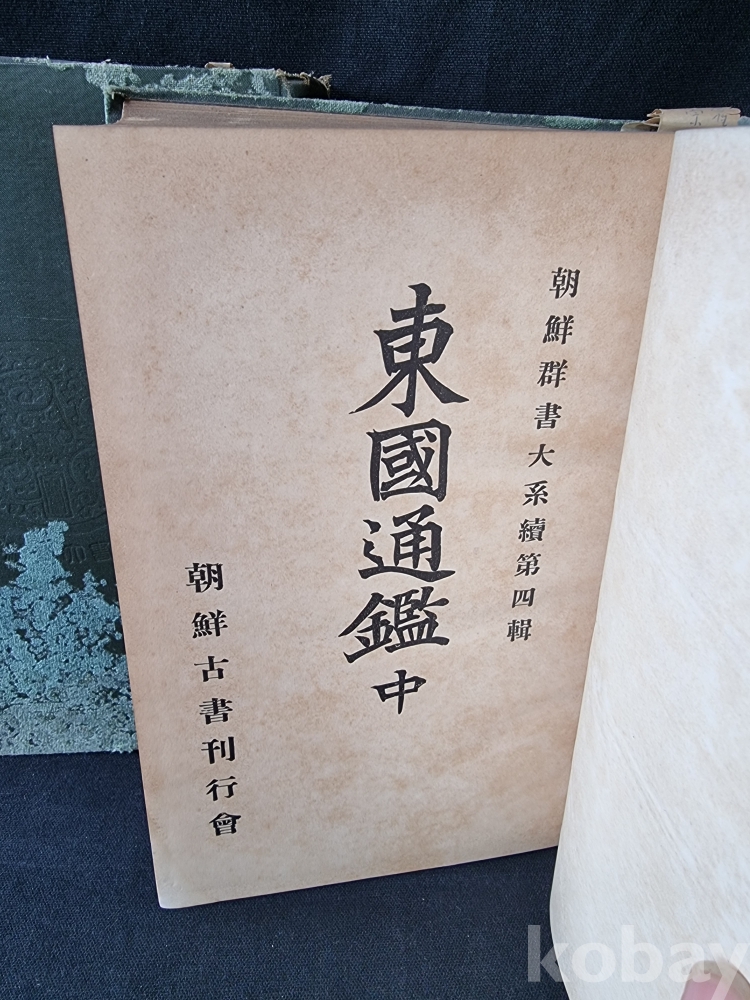 朝鮮群書大系續第四輯
東國通鑑中
朝鮮古書刊行會
kobay